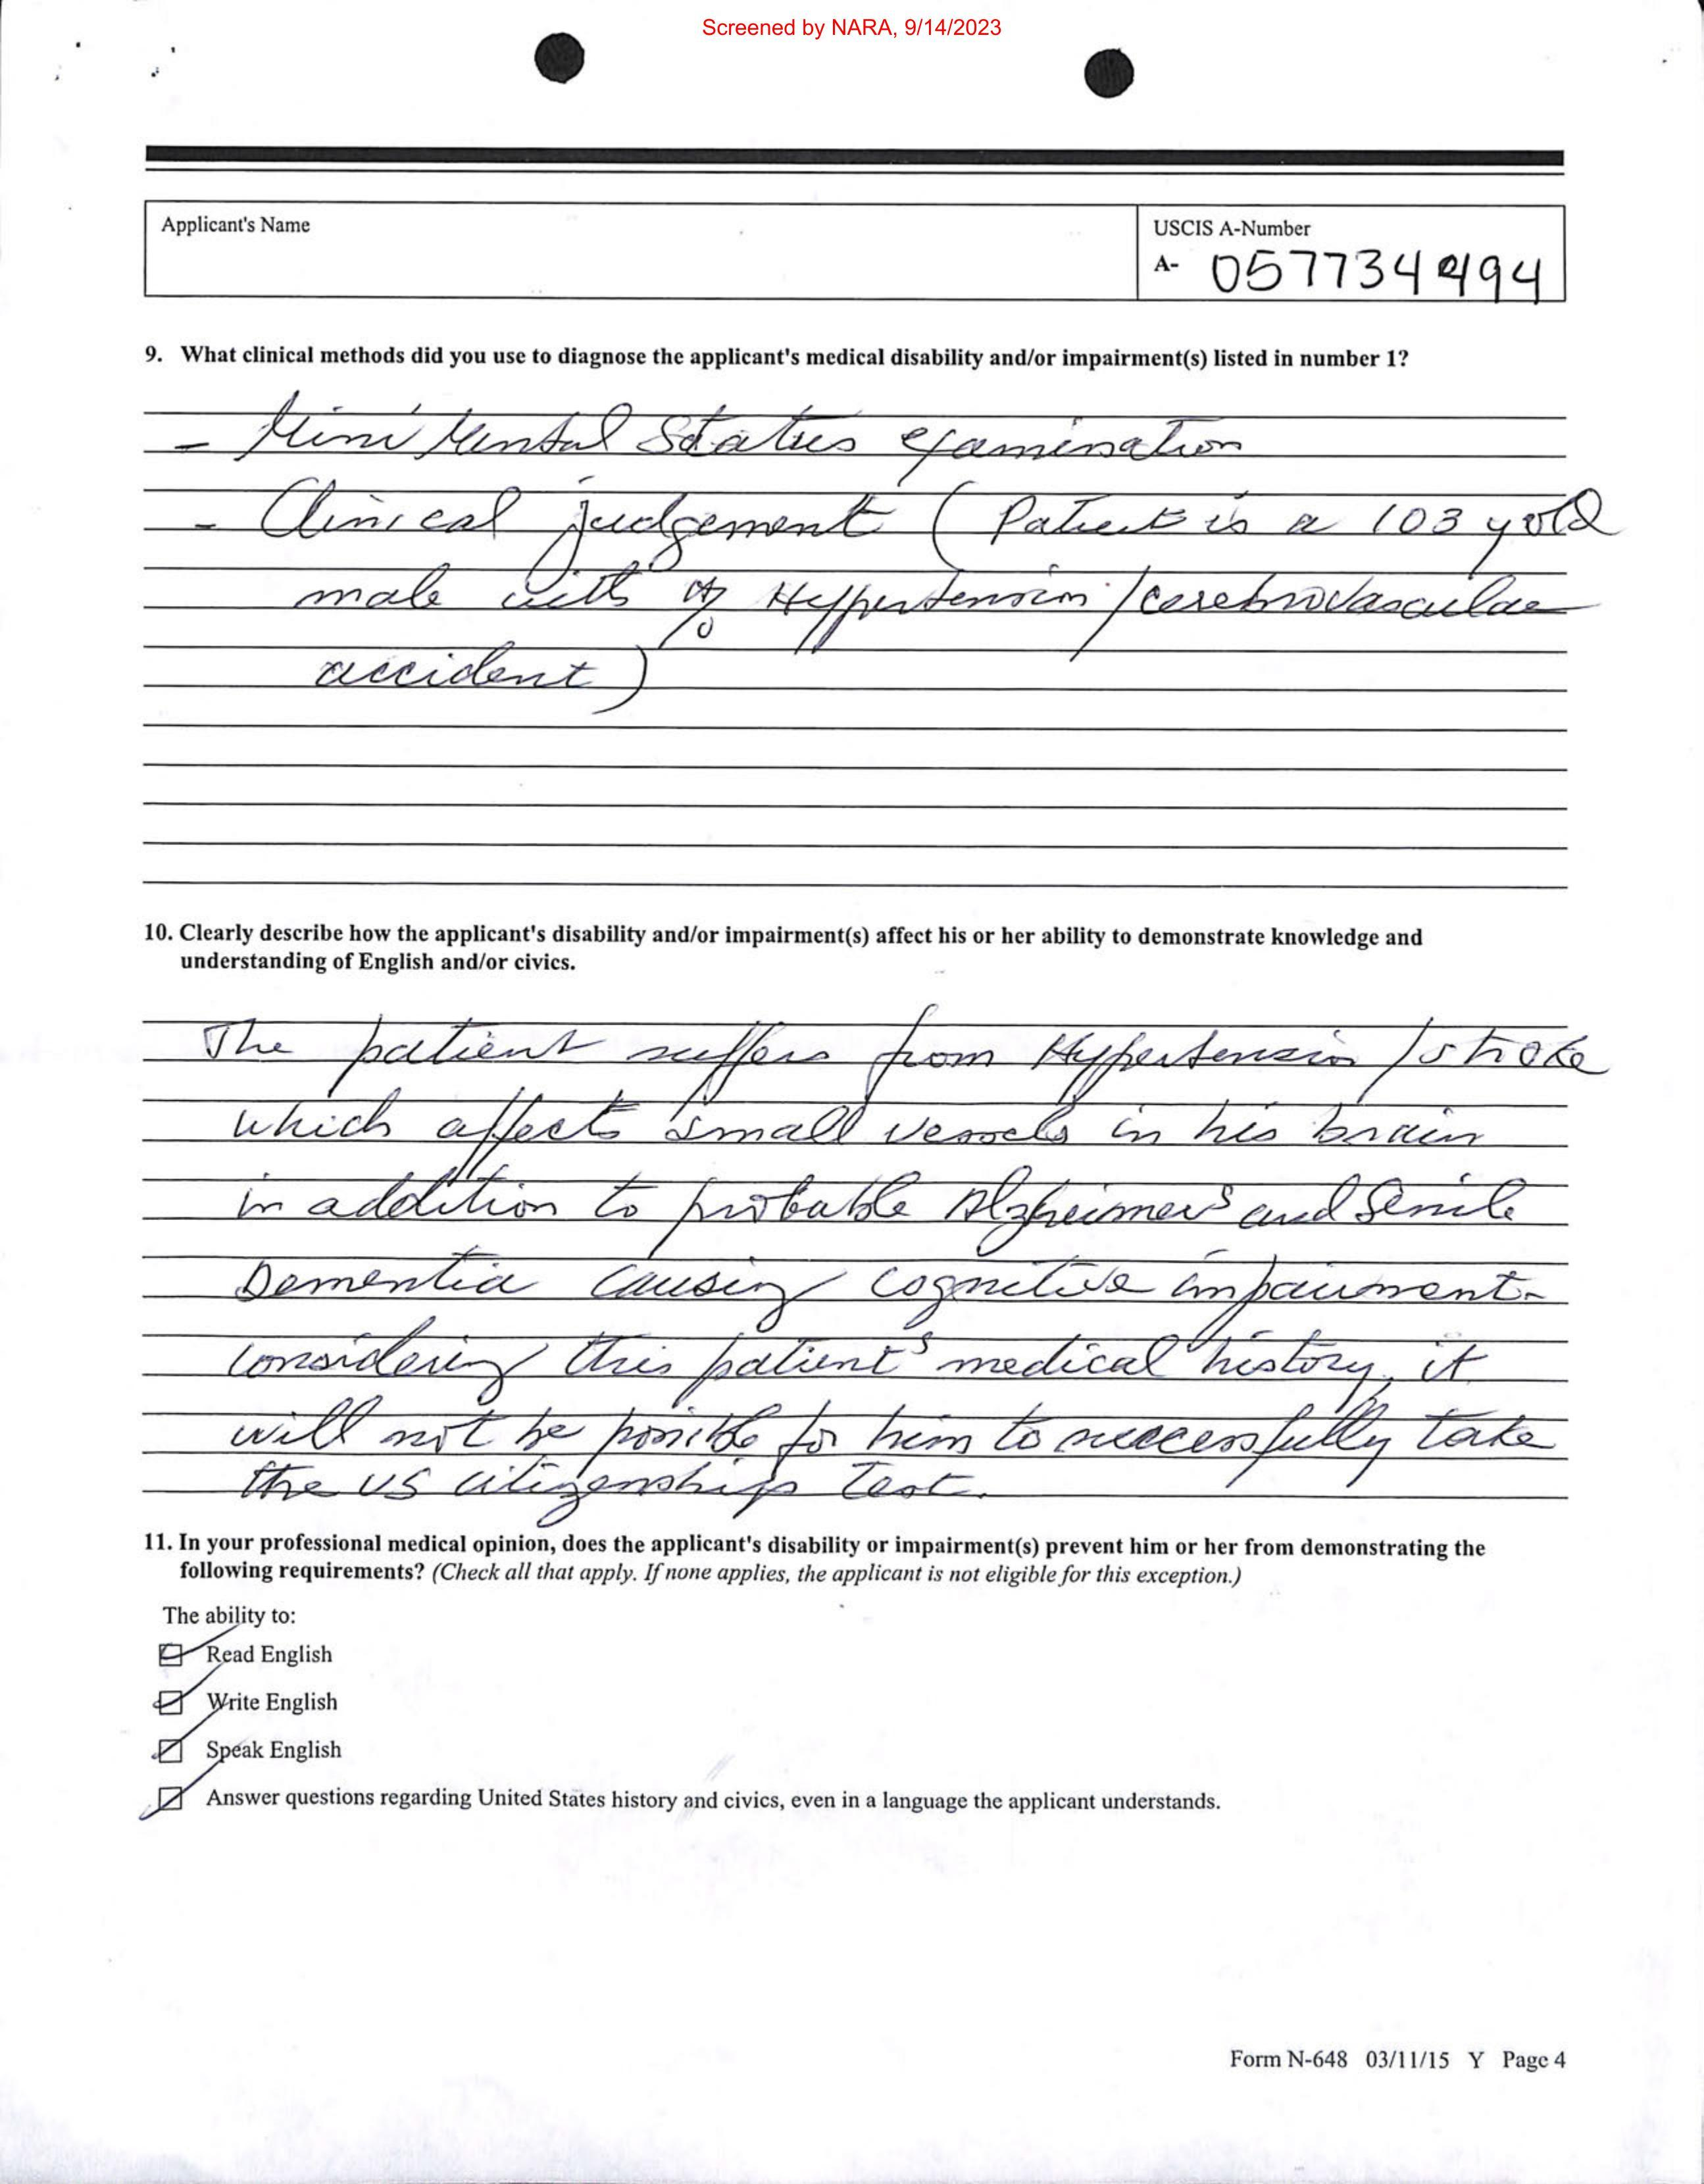 Screened by NARA, 9/14/2023
Applicant's Name
USCIS A-Number
A- 057734494
9. What clinical methods did you use to diagnose the applicant's medical disability and/or impairment(s) listed in number 1?
- Mini Mental Status examination
- Clinical judgement ( Patient is a 103 y old
male with Hypertension / cerebrovascular
accident )
10. Clearly describe how the applicant's disability and/or impairment(s) affect his or her ability to demonstrate knowledge and
understanding of English and/or civics.
The patient suffers from Hypertension / stroke
which affects small vessels in his brain
in addition to probable Alzheimers and Senile
Dementia causing cognitive impairment.
Considering this patient's medical history, it
will not be possible for him to successfully take
the US citizenship Test.
11. In your professional medical opinion, does the applicant's disability or impairment(s) prevent him or her from demonstrating the
following requirements? (Check all that apply. If none applies, the applicant is not eligible for this exception.)
The ability to:
Read English
Write English
Speak English
Answer questions regarding United States history and civics, even in a language the applicant understands.
Form N-648 03/11/15 Y Page 4